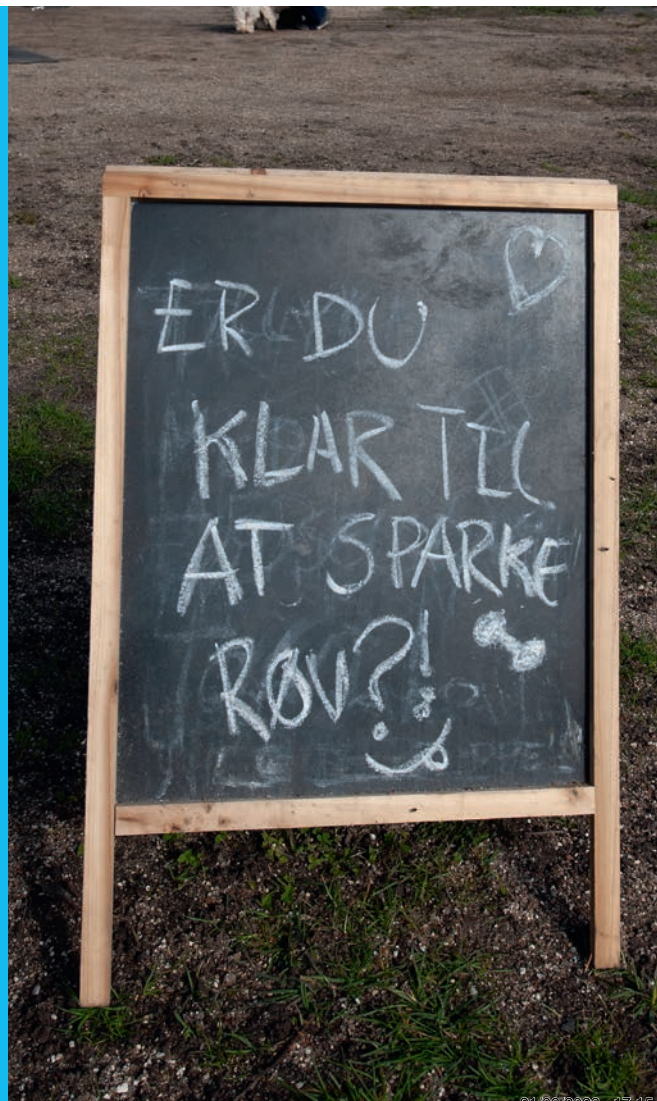 ER DU
KLAR TIL
AT SPARKE
RØV?!